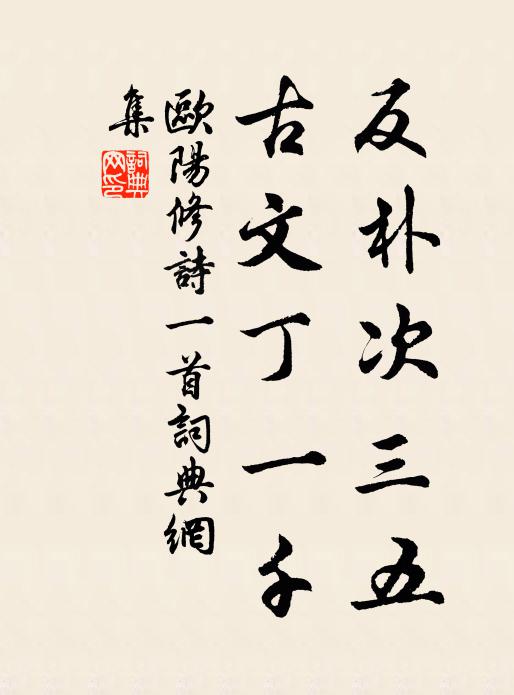 反朴次三五
古文丁一千
歐陽修詩一首詞典網
集
詞典網印